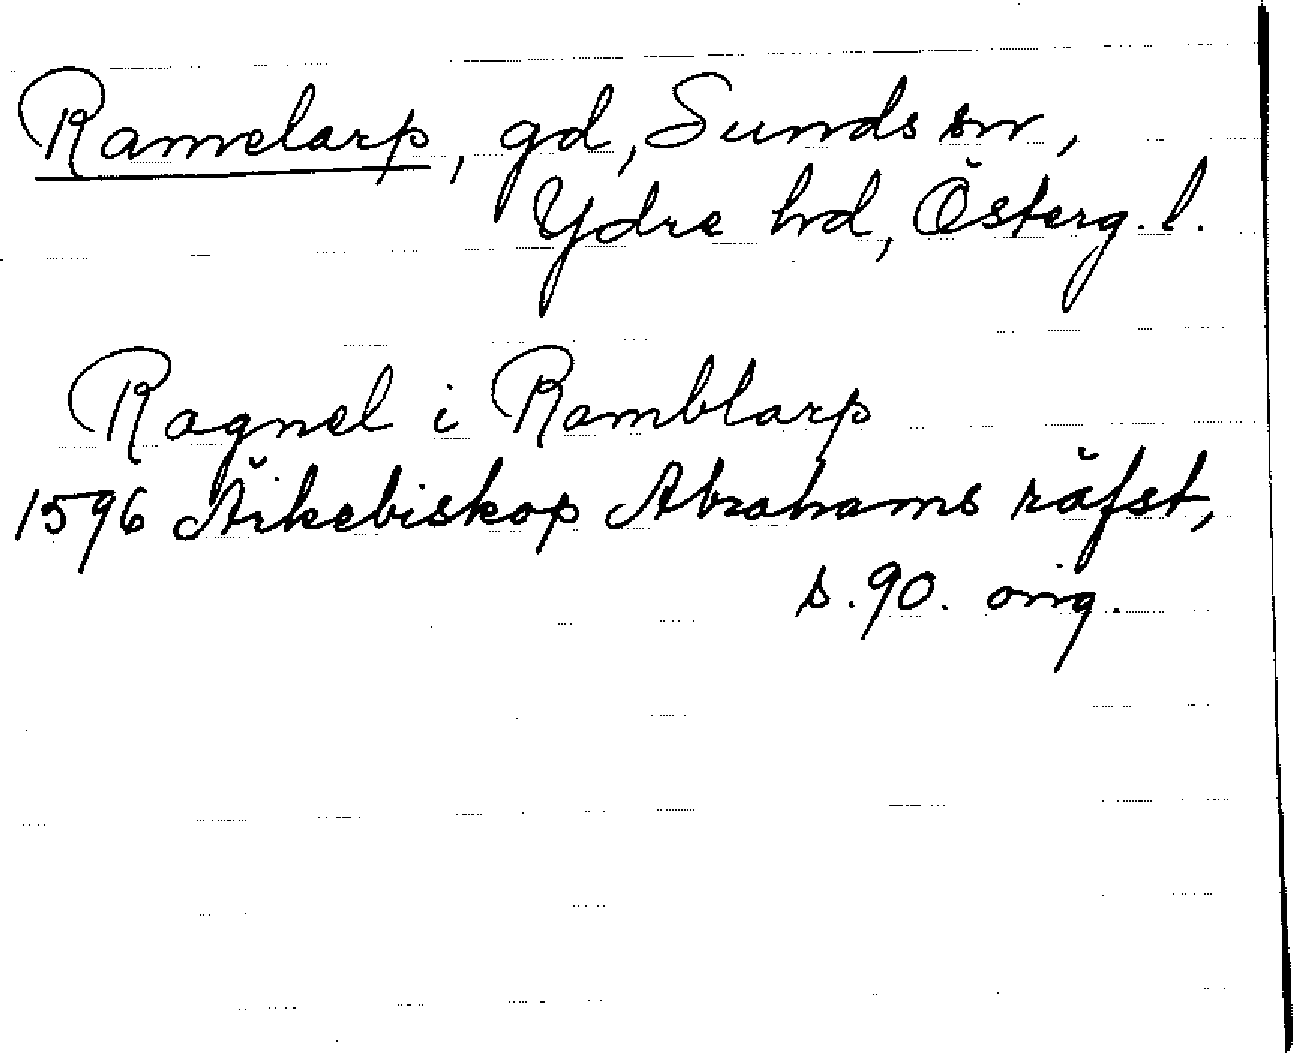 Ramelarp, gd, Sunds sn,
Ydre hd, Österg. l.
Ragnel i Ramblarp
1596 Ärkebiskop Abrahams räfst,
s. 90. orig.